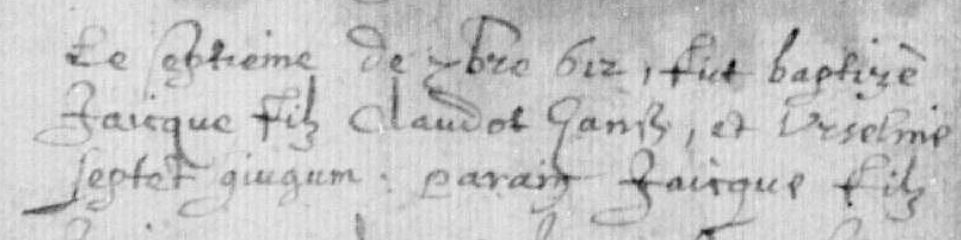 Le septieme de 7bre 612, fut baptizé
Jaicque filz Claudot Hanss, et Urseline
septet giugum : parain Jaicque filz